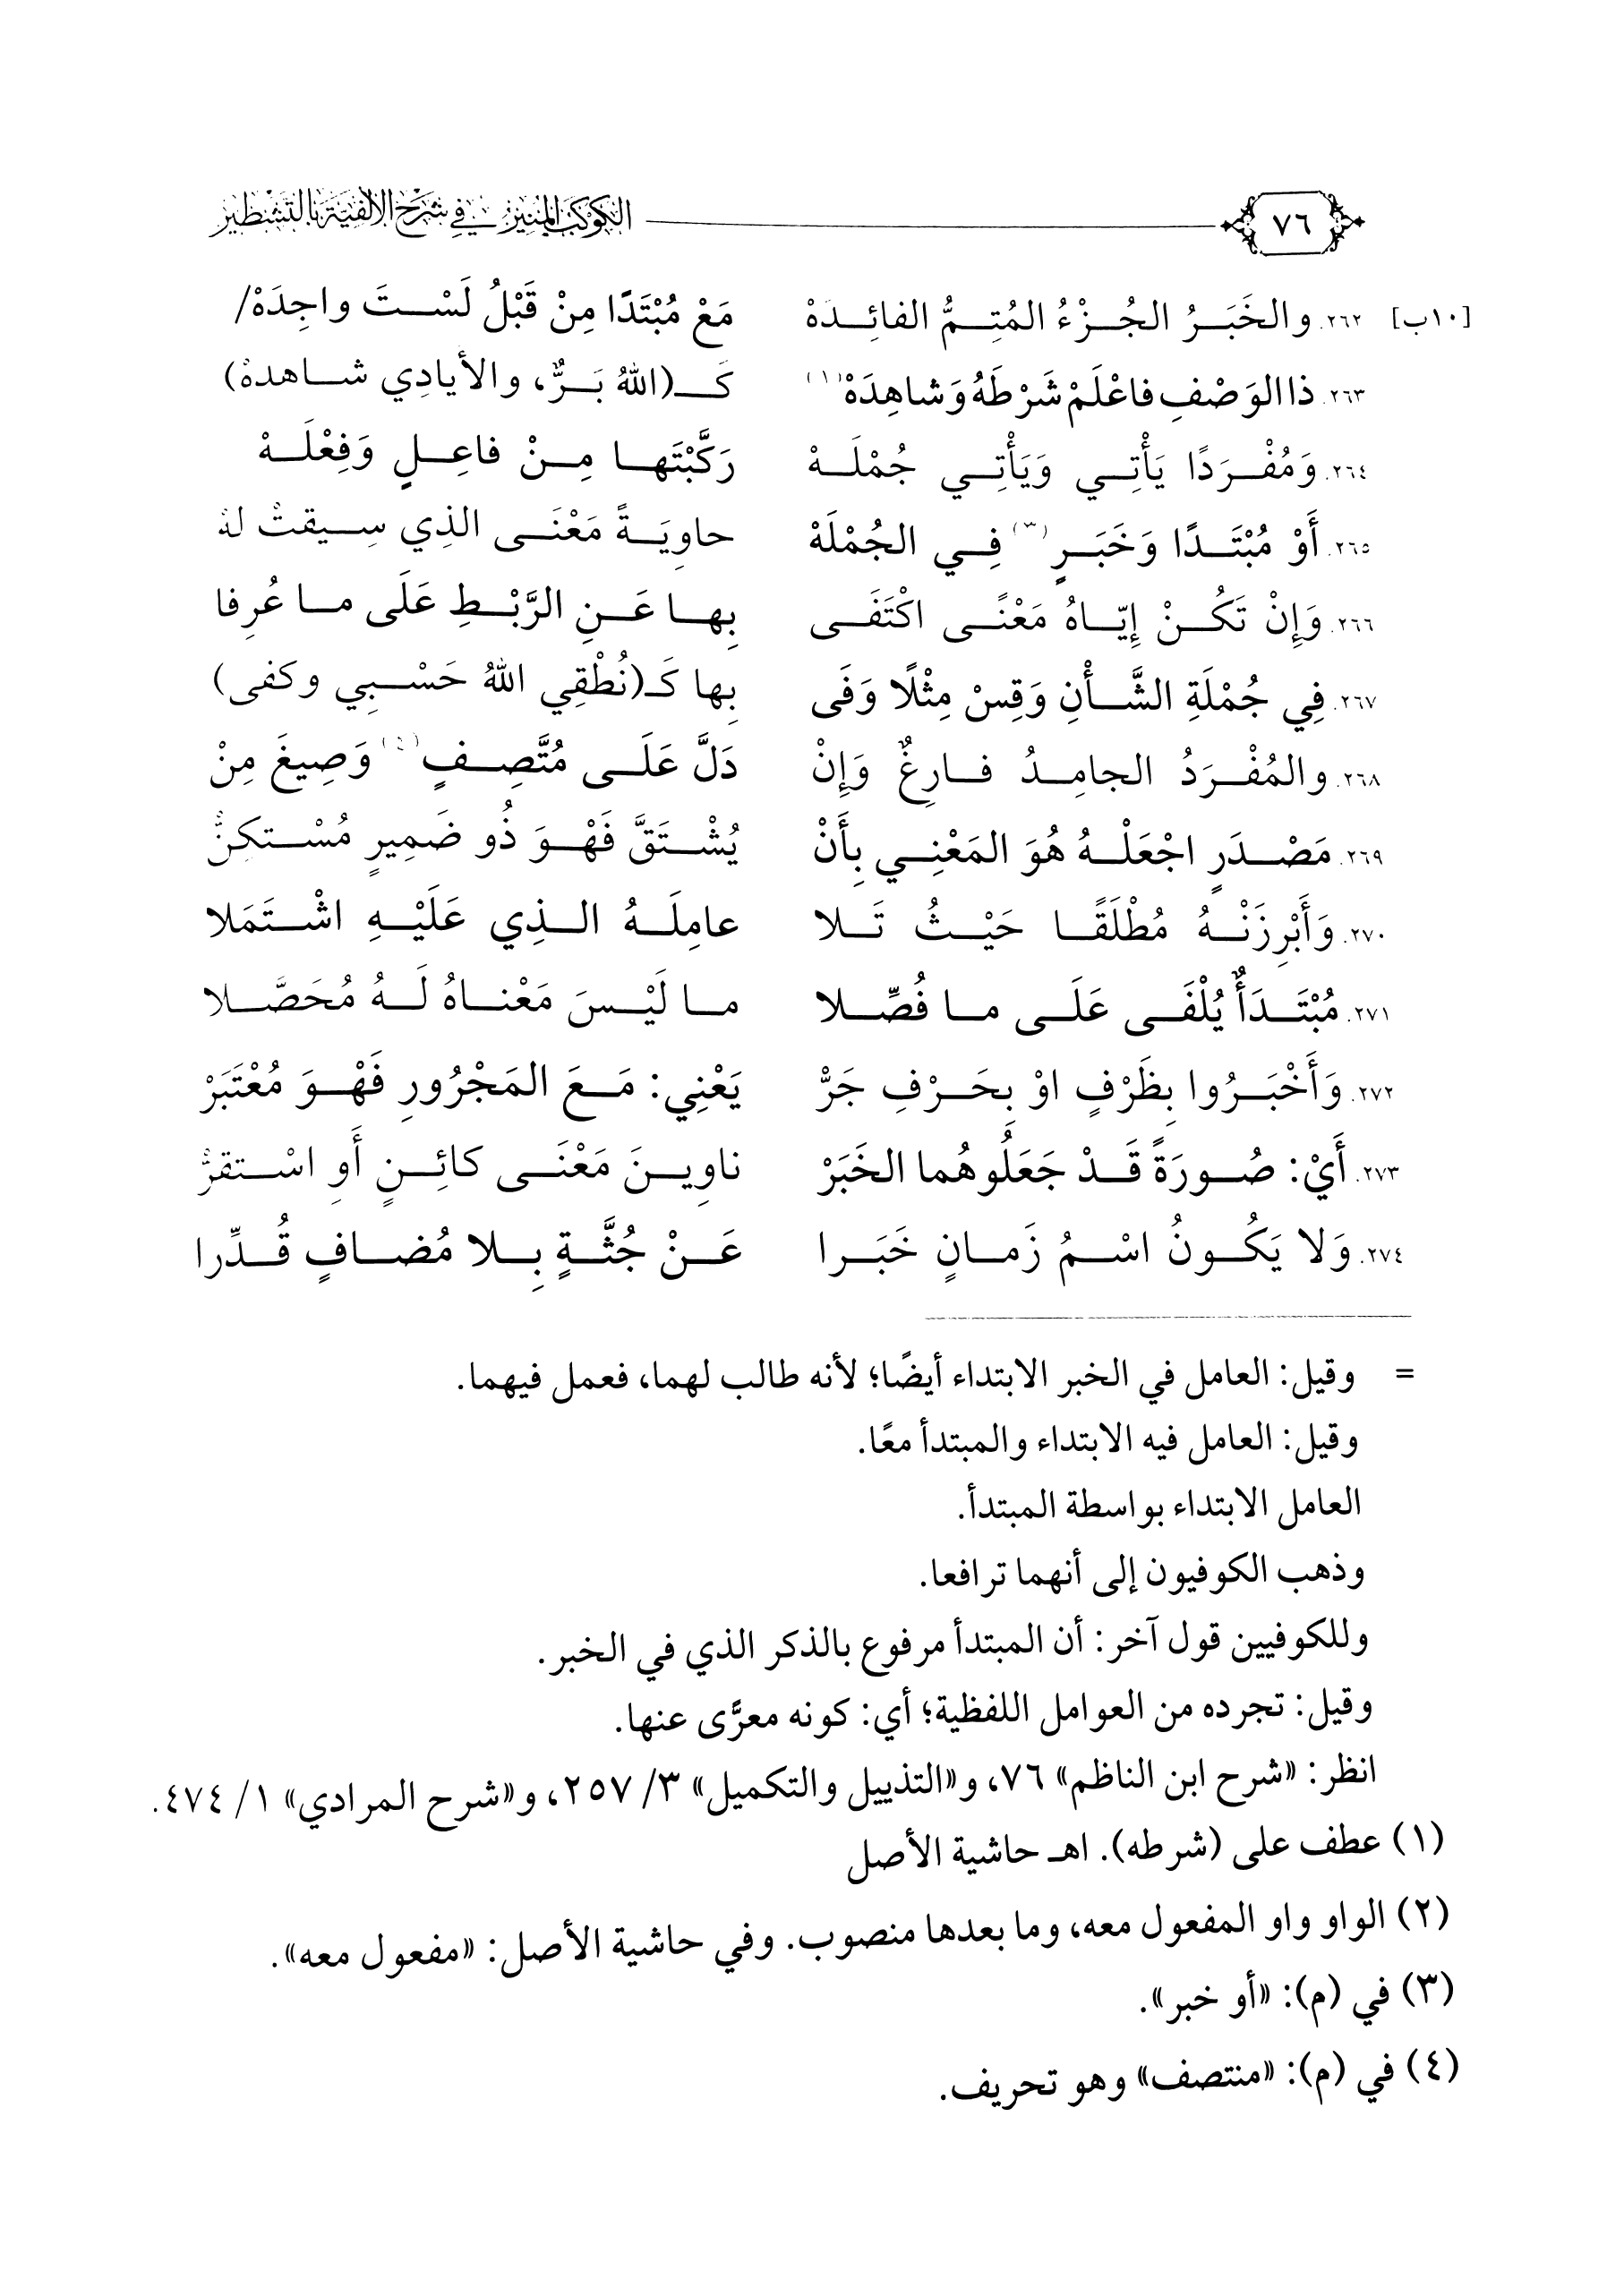 ٧٦
الكوكب المنير في شرح الألفية بالتشطير
[١٠ب] ٢٦٢. والخَبَرُ الجُزْءُ المُتِمُّ الفائِدَهْ مَعْ مُبْتَدًا مِنْ قَبْلُ لَسْتَ واجِدَهْ/
٢٦٣. ذا الوَصْفِ فاعْلَمْ شَرْطَهُ وَشاهِدَهْ(١) كَـ(اللهُ بَرٌّ، والأيادِي شاهدهْ)
٢٦٤. وَمُفْرَدًا يَأْتِي وَيَأْتِي جُمْلَهْ رَكَّبْتَها مِنْ فاعِلٍ وَفِعْلَهْ
٢٦٥. أَوْ مُبْتَدًا وَخَبَرٍ(٣) فِي الجُمْلَهْ حاوِيَةً مَعْنَى الذِي سِيقتْ لهْ
٢٦٦. وَإِنْ تَكُنْ إِيّاهُ مَعْنًى اكْتَفَى بِها عَنِ الرَّبْطِ عَلَى ما عُرِفا
٢٦٧. فِي جُمْلَةِ الشَّأْنِ وَقِسْ مِثْلًا وَفَى بِها كَـ(نُطْقِي اللهُ حَسْبِي وكفى)
٢٦٨. والمُفْرَدُ الجامِدُ فارِغٌ وَإِنْ دَلَّ عَلَى مُتَّصِفٍ(٤) وَصِيغَ مِنْ
٢٦٩. مَصْدَرٍ اجْعَلْهُ هُوَ المَعْنِي بِأَنْ يُشْتَقَّ فَهْوَ ذُو ضَمِيرٍ مُسْتكِنّْ
٢٧٠. وَأَبْرِزَنْهُ مُطْلَقًا حَيْثُ تَلا عامِلَهُ الذِي عَلَيْهِ اشْتَمَلا
٢٧١. مُبْتَدَأٌ يُلْفَى عَلَى ما فُصِّلا ما لَيْسَ مَعْناهُ لَهُ مُحَصَّلا
٢٧٢. وَأَخْبَرُوا بِظَرْفٍ اوْ بِحَرْفِ جَرّْ يَعْنِي: مَعَ المَجْرُورِ فَهْوَ مُعْتَبَرْ
٢٧٣. أَيْ: صُورَةً قَدْ جَعَلُوهُما الخَبَرْ ناوِينَ مَعْنَى كائِنٍ أَوِ اسْتقرّْ
٢٧٤. وَلا يَكُونُ اسْمُ زَمانٍ خَبَرا عَنْ جُثَّةٍ بِلا مُضافٍ قُدِّرا
= وقيل: العامل في الخبر الابتداء أيضًا؛ لأنه طالب لهما، فعمل فيهما.
وقيل: العامل فيه الابتداء والمبتدأ معًا.
العامل الابتداء بواسطة المبتدأ.
وذهب الكوفيون إلى أنهما ترافعا.
وللكوفيين قول آخر: أن المبتدأ مرفوع بالذكر الذي في الخبر.
وقيل: تجرده من العوامل اللفظية؛ أي: كونه معرًّى عنها.
انظر: «شرح ابن الناظم» ٧٦، و«التذييل والتكميل» ٣/ ٢٥٧، و«شرح المرادي» ١/ ٤٧٤.
(١) عطف على (شرطه). اهـ حاشية الأصل
(٢) الواو واو المفعول معه، وما بعدها منصوب. وفي حاشية الأصل: «مفعول معه».
(٣) في (م): «أو خبر».
(٤) في (م): «منتصف» وهو تحريف.